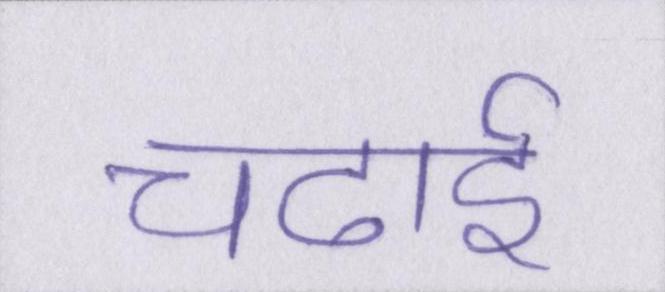 चढाई